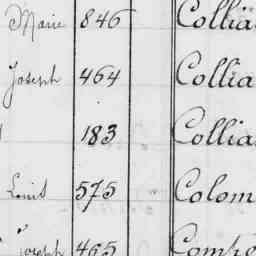 Marie 846 Collia
Joseph 464 Collia
183 Collia
Louis 575 Colom
Joseph 465 Compe